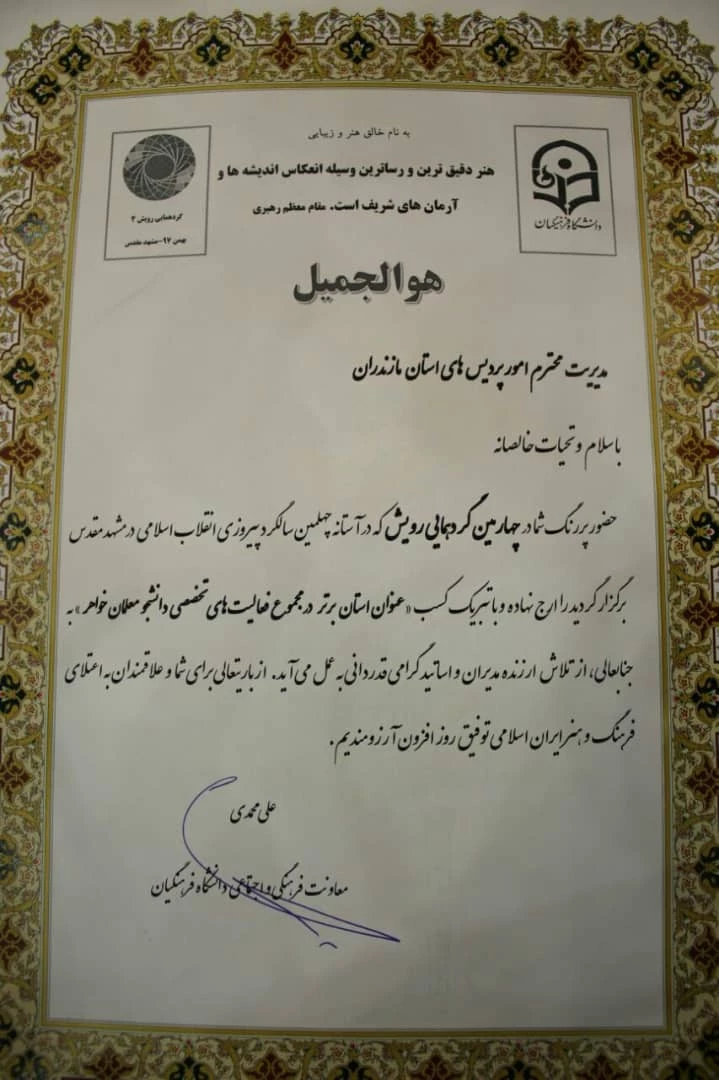 به نام خالق هنر و زیبایی
هنر دقیق ترین و رساترین وسیله انعکاس اندیشه ها و
آرمان های شریف است. مقام معظم رهبری
دانشگاه فرهنگیان
گردهمایی رویش ۴
بهمن ۹۷-مشهد مقدس
هوالجمیل
مدیریت محترم امور پردیس های استان مازندران
باسلام و تحیات خالصانه
حضور پررنگ شما در چهارمین گردهمایی رویش که در آستانه چهلمین سالگرد پیروزی انقلاب اسلامی در مشهد مقدس
برگزار گردید را ارج نهاده و با تبریک کسب «عنوان استان برتر در مجموع فعالیت های تخصصی دانشجو معلمان خواهر» به
جنابعالی، از تلاش ارزنده مدیران و اساتید گرامی قدردانی به عمل می آید. از باریتعالی برای شما و علاقمندان به اعتلای
فرهنگ و هنر ایران اسلامی توفیق روز افزون آرزومندیم.
علی محمدی
معاونت فرهنگی و اجتماعی دانشگاه فرهنگیان